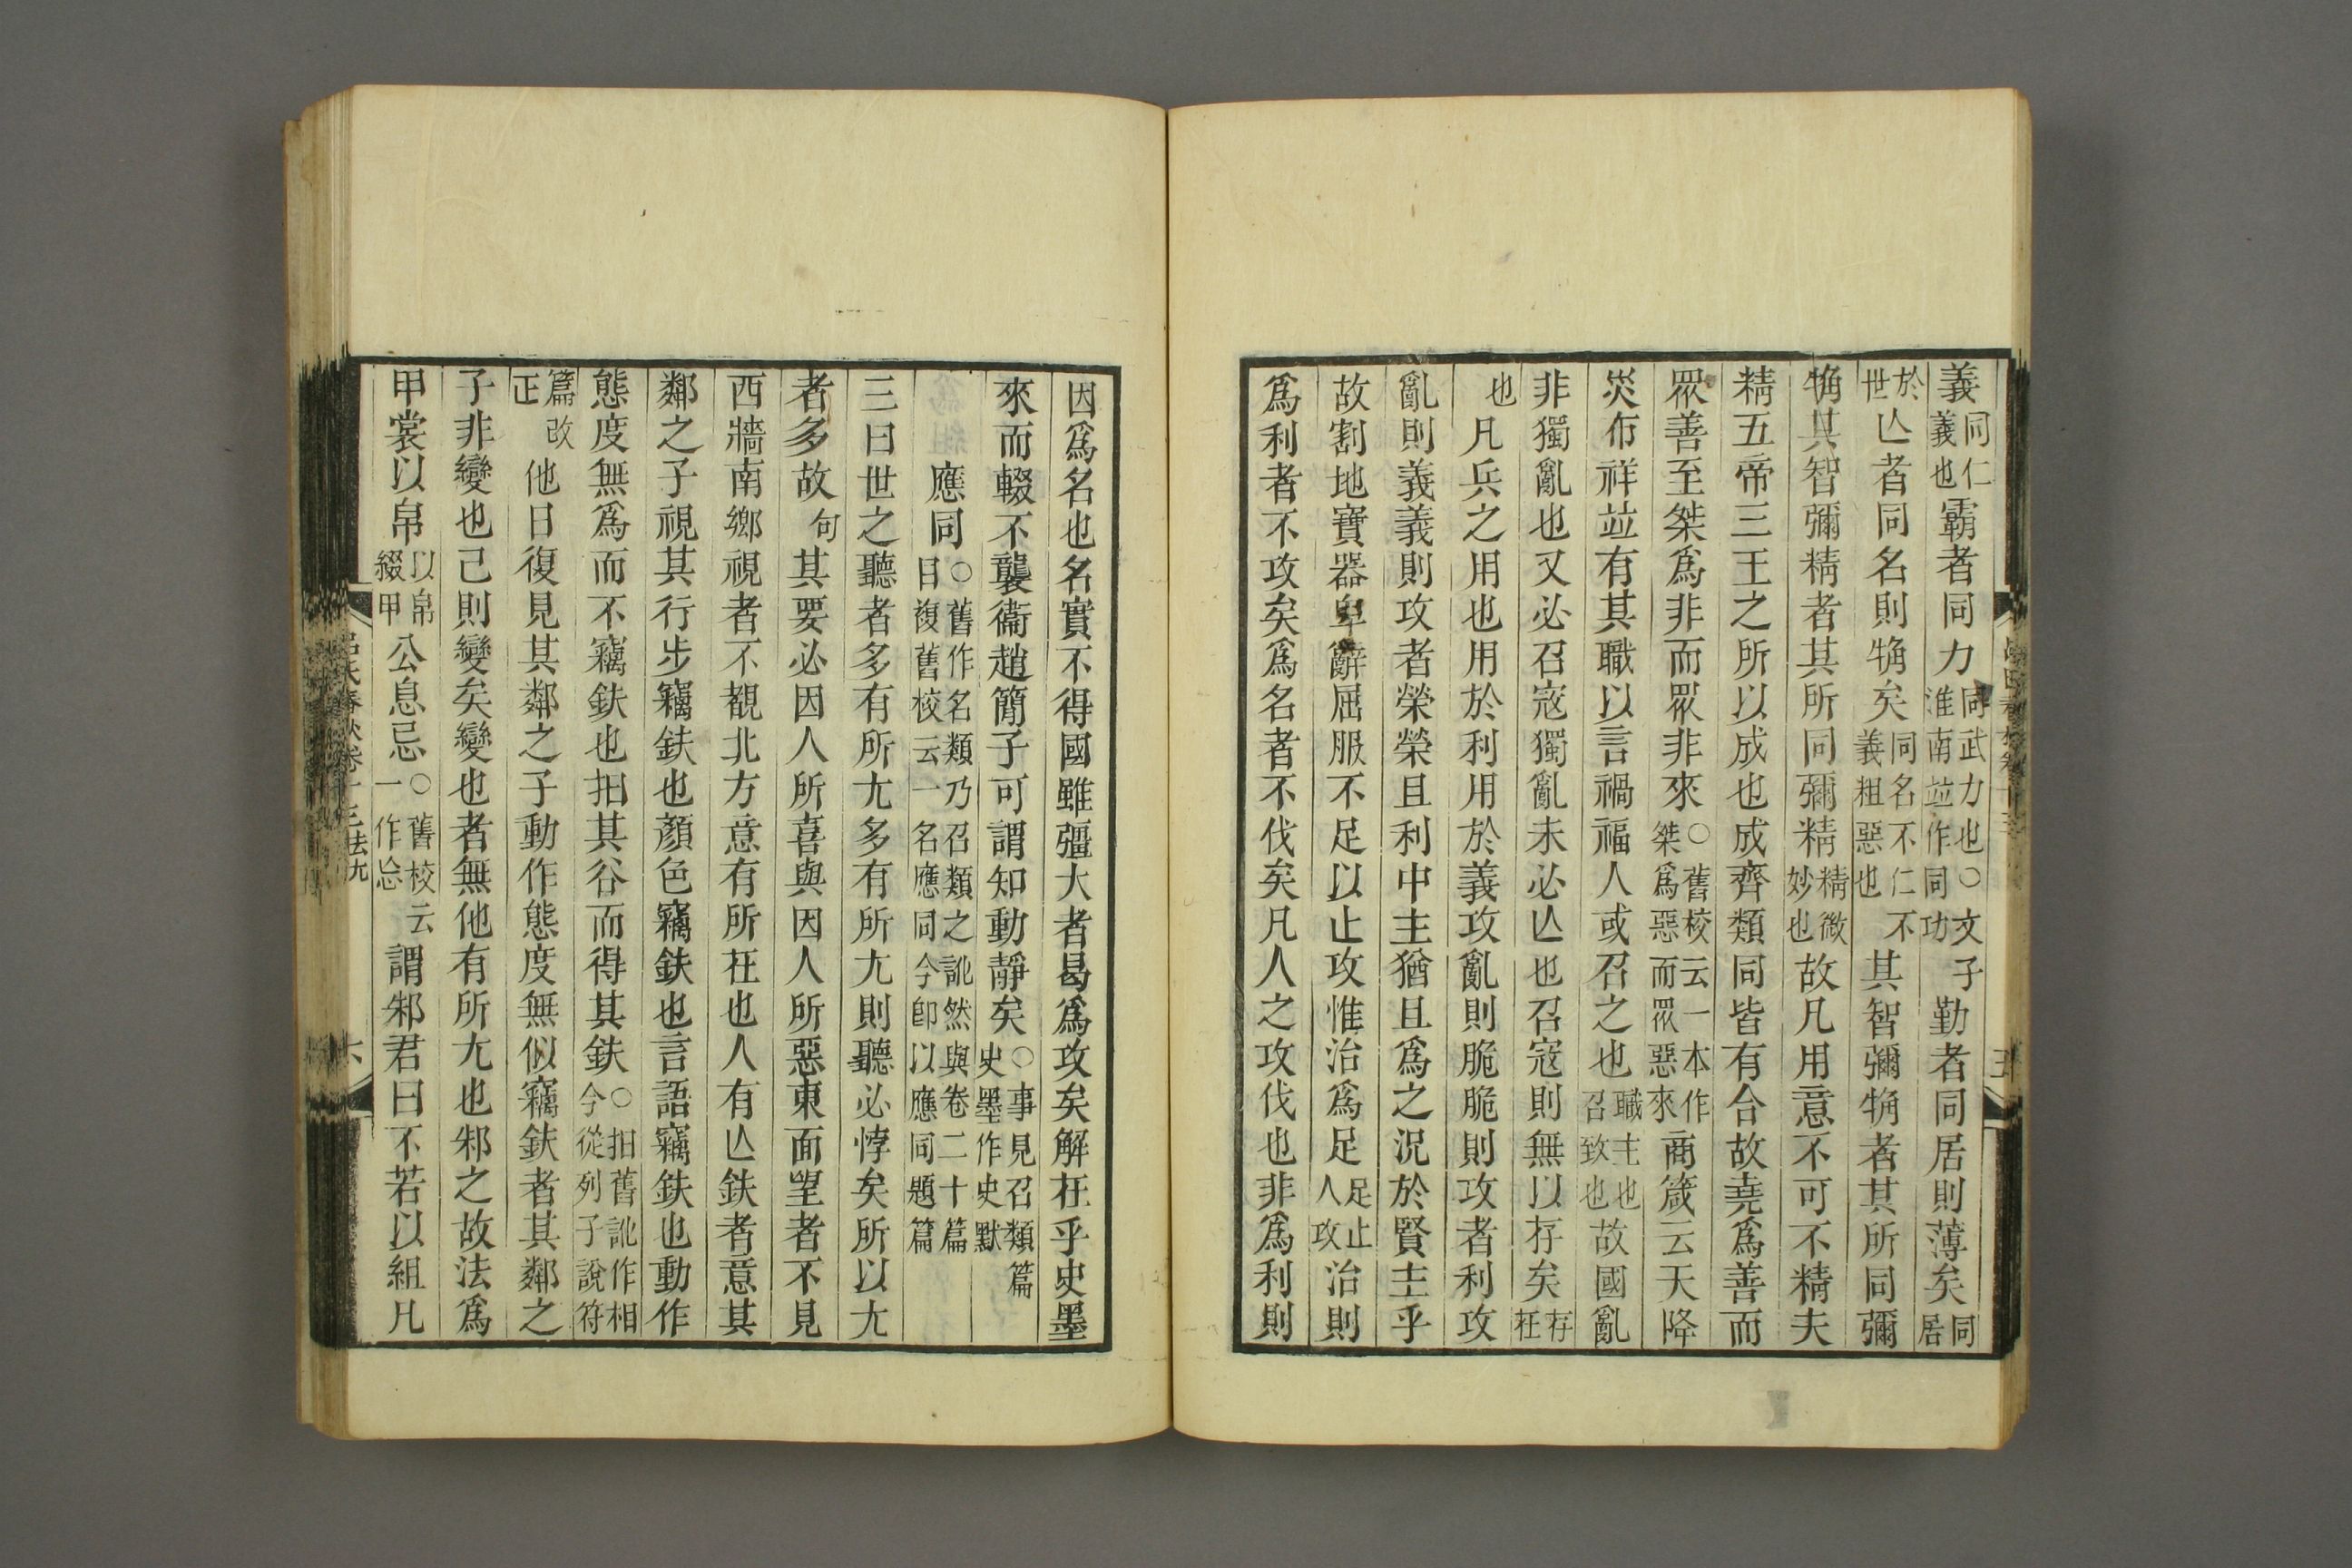 義同仁義也霸者同力同武力也○文子淮南竝作同功勤者同居則薄矣同居
於世亾者同名則觕矣同名不仁不義粗惡也其智彌觕者其所同彌
觕其智彌精者其所同彌精精微妙也故凡用意不可不精夫
精五帝三王之所以成也成齊類同皆有合故堯爲善而
眾善至桀爲非而眾非來○舊校云一本作桀爲惡而眾惡來商箴云天降
災布祥竝有其職以言禍福人或召之也職主也召致也故國亂
非獨亂也又必召寇獨亂未必亾也召寇則無以存矣存在
也凡兵之用也用於利用於義攻亂則脆脆則攻者利攻
亂則義義則攻者榮榮且利中主猶且爲之況於賢主乎
故割地寶器卑辭屈服不足以止攻惟治爲足足止人攻治則
爲利者不攻矣爲名者不伐矣凡人之攻伐也非爲利則
因爲名也名實不得國雖彊大者曷爲攻矣解在乎史墨
來而輟不襲衞趙簡子可謂知動靜矣○事見召類篇史墨作史默
應同○舊作名類乃召類之訛然與卷二十篇目複舊校云一名應同今卽以應同題篇
三曰世之聽者多有所尤多有所尤則聽必悖矣所以尤
者多故句其要必因人所喜與因人所惡東面望者不見
西牆南鄉視者不覩北方意有所在也人有亾鈇者意其
鄰之子視其行步竊鈇也顏色竊鈇也言語竊鈇也動作
態度無爲而不竊鈇也抇其谷而得其鈇○抇舊訛作相今從列子說符
篇改正他日復見其鄰之子動作態度無似竊鈇者其鄰之
子非變也己則變矣變也者無他有所尤也邾之故法爲
甲裳以帛以帛綴甲公息忌○舊校云一作忘謂邾君曰不若以組凡
呂氏春秋卷十三去尤
六